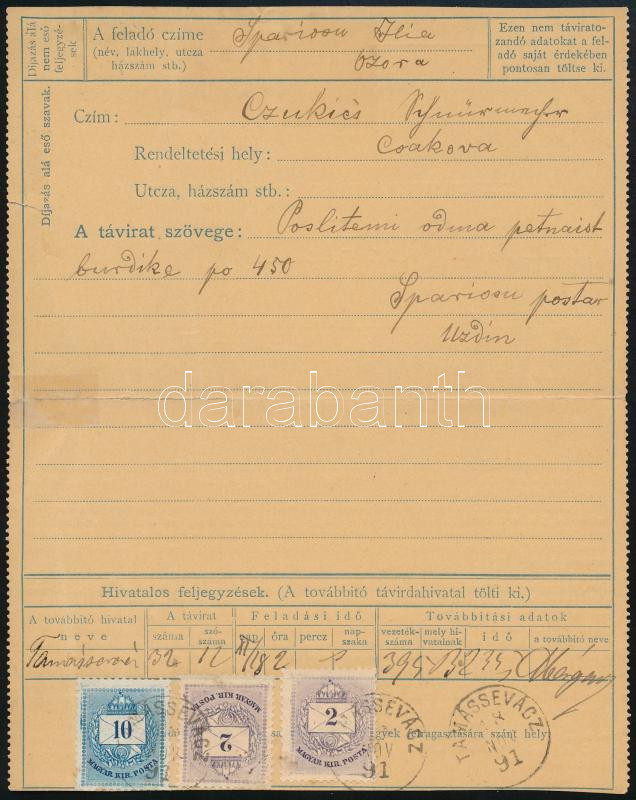 Díjazás alá nem eső feljegyzések
A feladó czíme Spariosu Ilia
(név, lakhely, utcza házszám stb.) Ozora
Ezen nem távirato-
zandó adatokat a fel-
adó saját érdekében
pontosan töltse ki.
Díjazás alá eső szavak.
Czím: Czukics Schnürmacher
Rendeltetési hely: Csakova
Utcza, házszám stb.:
A távirat szövege: Poslitemi odma petnaist
burdike po 450
Spariosu postar
Uzdin
darabanth
Hivatalos feljegyzések. (A továbbító távirdahivatal tölti ki.)
A továbbító hivatal neve
A távirat
száma
szó-
száma
Feladási idő
nap
óra
percz
nap-
szaka
Továbbítási adatok
vezeték-
száma
mely hi-
vatalnak
idő
a továbbító neve
32 12
10
MAGYAR KIR. POSTA
2
MAGYAR KIR. POSTA
2
MAGYAR KIR. POSTA
TAMÁSSEVÁCZ
91
TAMÁSSEVÁCZ
NOV
91
ragasztására szánt hely.